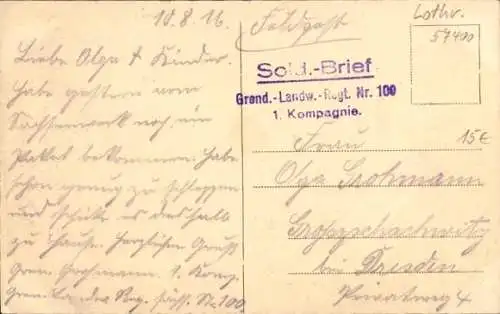 10.8.16.
Liebe Olga & Kinder.
Habe gestern vom
Sachsenwerk noch ein
Paket bekommen. Habe
schon genug zu schleppen
und schicke es deshalb
zu Hause. Herzlichen Gruß
Gren. Grohmann. 1. Komp.
Gren. Landw. Reg. sächs. No 100
Feldpost
Lothr.
57400
Sold.-Brief
Grend.-Landw.-Regt. Nr. 100
1. Kompagnie.
15€
Frau
Olga Grohmann
Großzschachwitz
bei Dresden
Privatweg 4